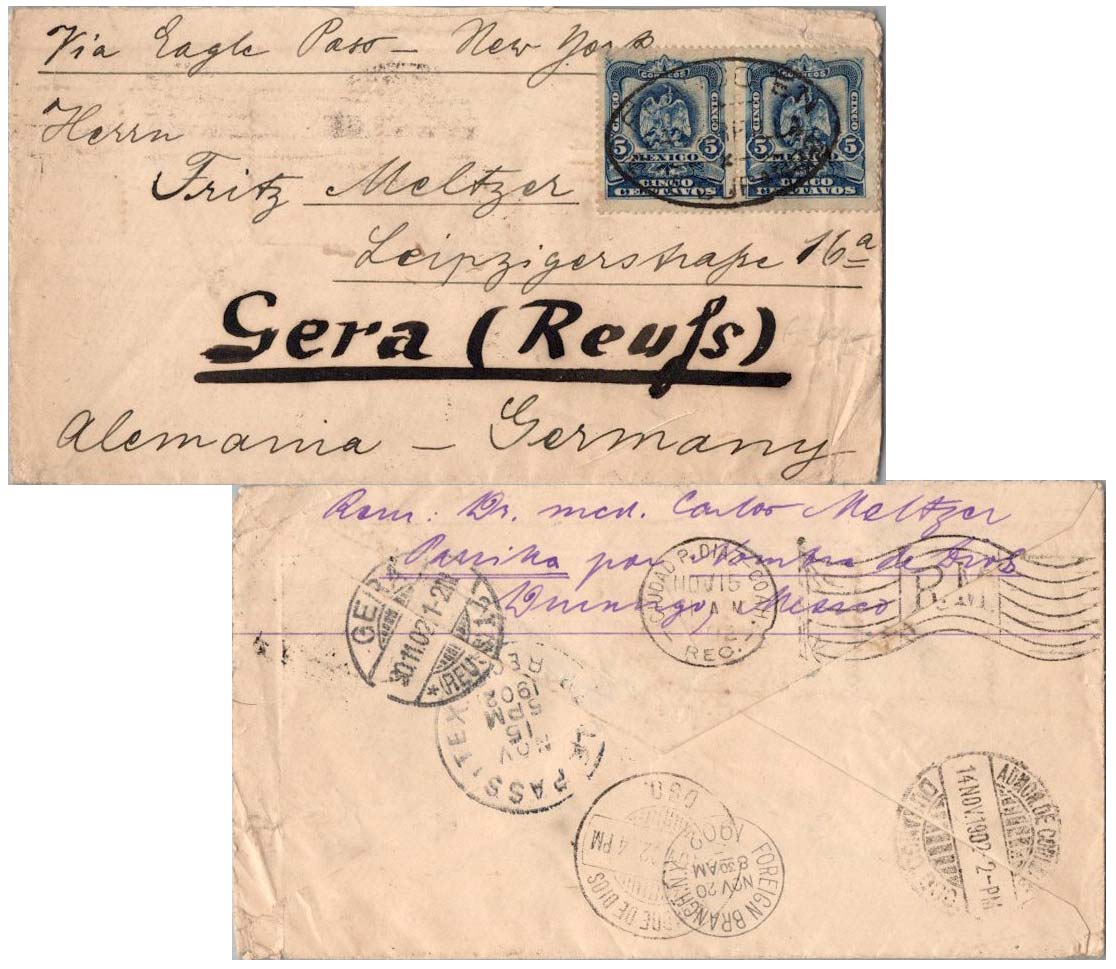 Via Eagle Pass – New York
Herrn
Fritz Meltzer
Leipzigerstraße 16a
Gera (Reuſs)
Alemania – Germany
CORREOS CORREOS
CINCO CINCO CINCO
5 MEXICO 5 5 5
CINCO CINCO
CENTAVOS CENTAVOS
Rem: Dr. med. Carlos Meltzer
Parrilla por Nombre de Dios
Durango, Mexico
CIUDAD P. DIAZ COAH.
NOV 15
AM
REC.
GERA
30.11.02.1-2N
* (REUSS)
REC'D
1902
5 PM
15
NOV
PASS, TEX
DGO.
4 PM
DE DIOS
1902
8 30 AM
NOV 20
FOREIGN BRANCH
DURANGO
14 NOV 1902 2-PM
ADMON DE